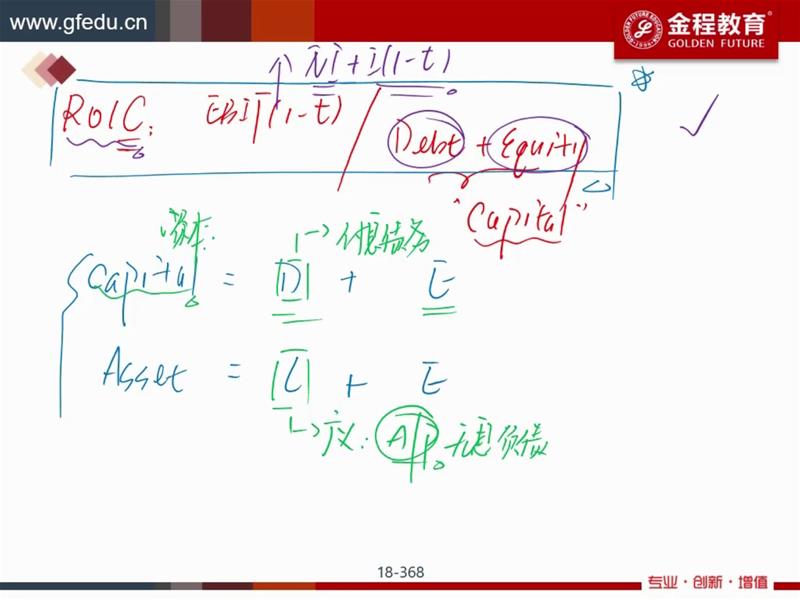 www.gfedu.cn
金程教育
GOLDEN FUTURE
NI + I(1-t)
ROIC: EBIT(1-t) / Debt + Equity
"Capital"
资本:
付息债务
Capital = D + E
Asset = L + E
广义: A/P 无息负债
18-368
专业·创新·增值